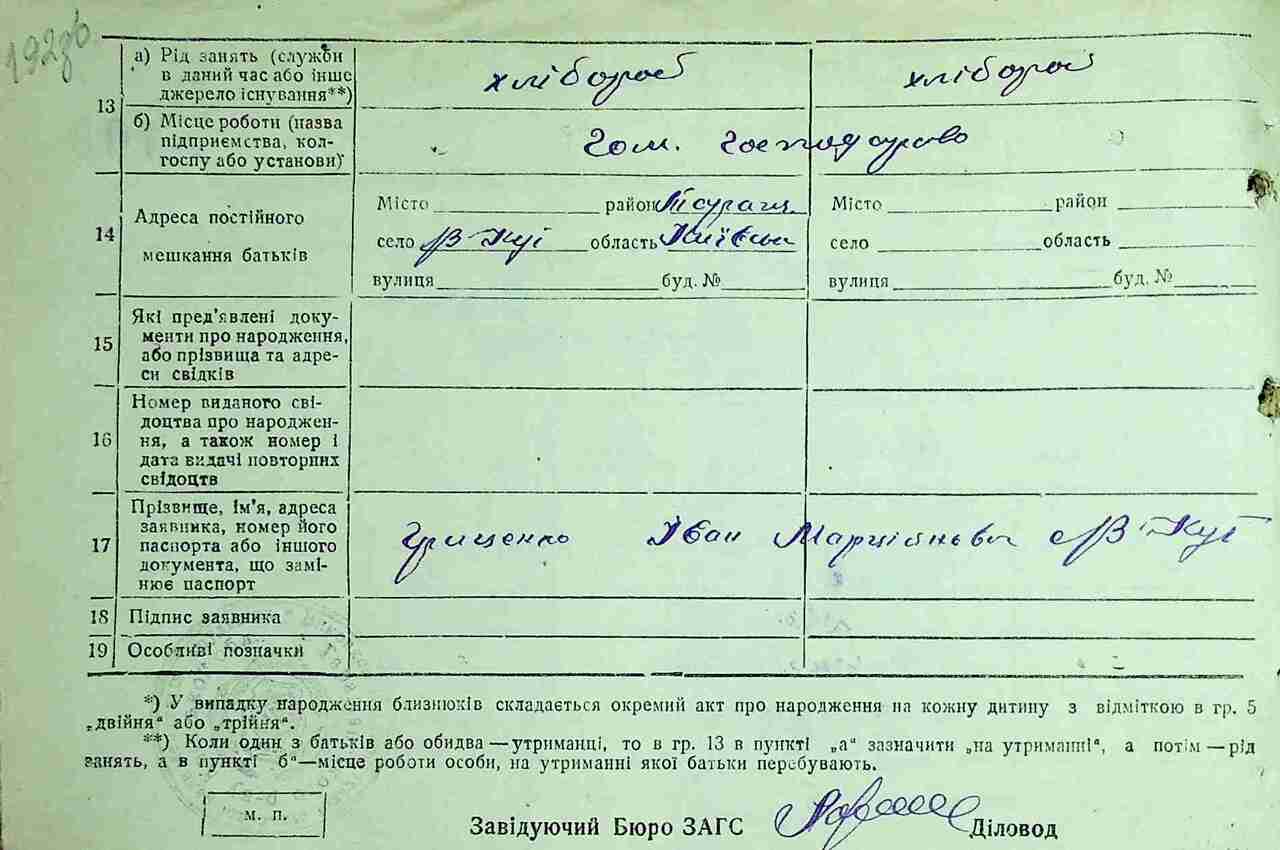 192зб
13 а) Рід занять (служби
в даний час або інше
джерело існування**)
хлібороб хлібороб
б) Місце роботи (назва
підприємства, кол-
госпу або установи)
Гом. господарство
14 Адреса постійного
мешкання батьків
Місто район Таращ. Місто район
село В-Кут область Київськ село область
вулиця буд. № вулиця буд. №
15 Які пред'явлені доку-
менти про народження,
або прізвища та адре-
си свідків
16 Номер виданого сві-
доцтва про народжен-
ня, а також номер і
дата видачі повторних
свідоцтв
17 Прізвище, ім'я, адреса
заявника, номер його
паспорта або іншого
документа, що замі-
нює паспорт
Грищенко Іван Марціянович с В-Кут
18 Підпис заявника
19 Особливі позначки
*) У випадку народження близнюків складається окремий акт про народження на кожну дитину з відміткою в гр. 5
„двійня" або „трійня".
**) Коли один з батьків або обидва—утриманці, то в гр. 13 в пункті „а" зазначити „на утриманні", а потім—рід
занять, а в пункті б"—місце роботи особи, на утриманні якої батьки перебувають.
м. п.
Завідуючий Бюро ЗАГС Діловод